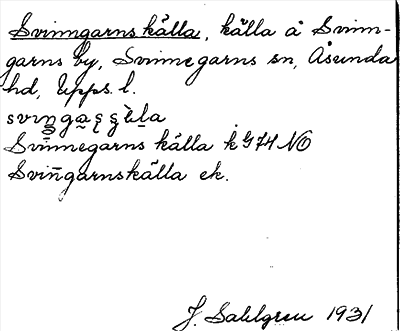 Svinngarns källa, källa å Svinn-
garns by, Svinnegarns sn, Åsunda
hd, Upps. l.
Svinnegarns källa k G74 NO
Svin̄garnskälla ek.
J. Sahlgren 1931